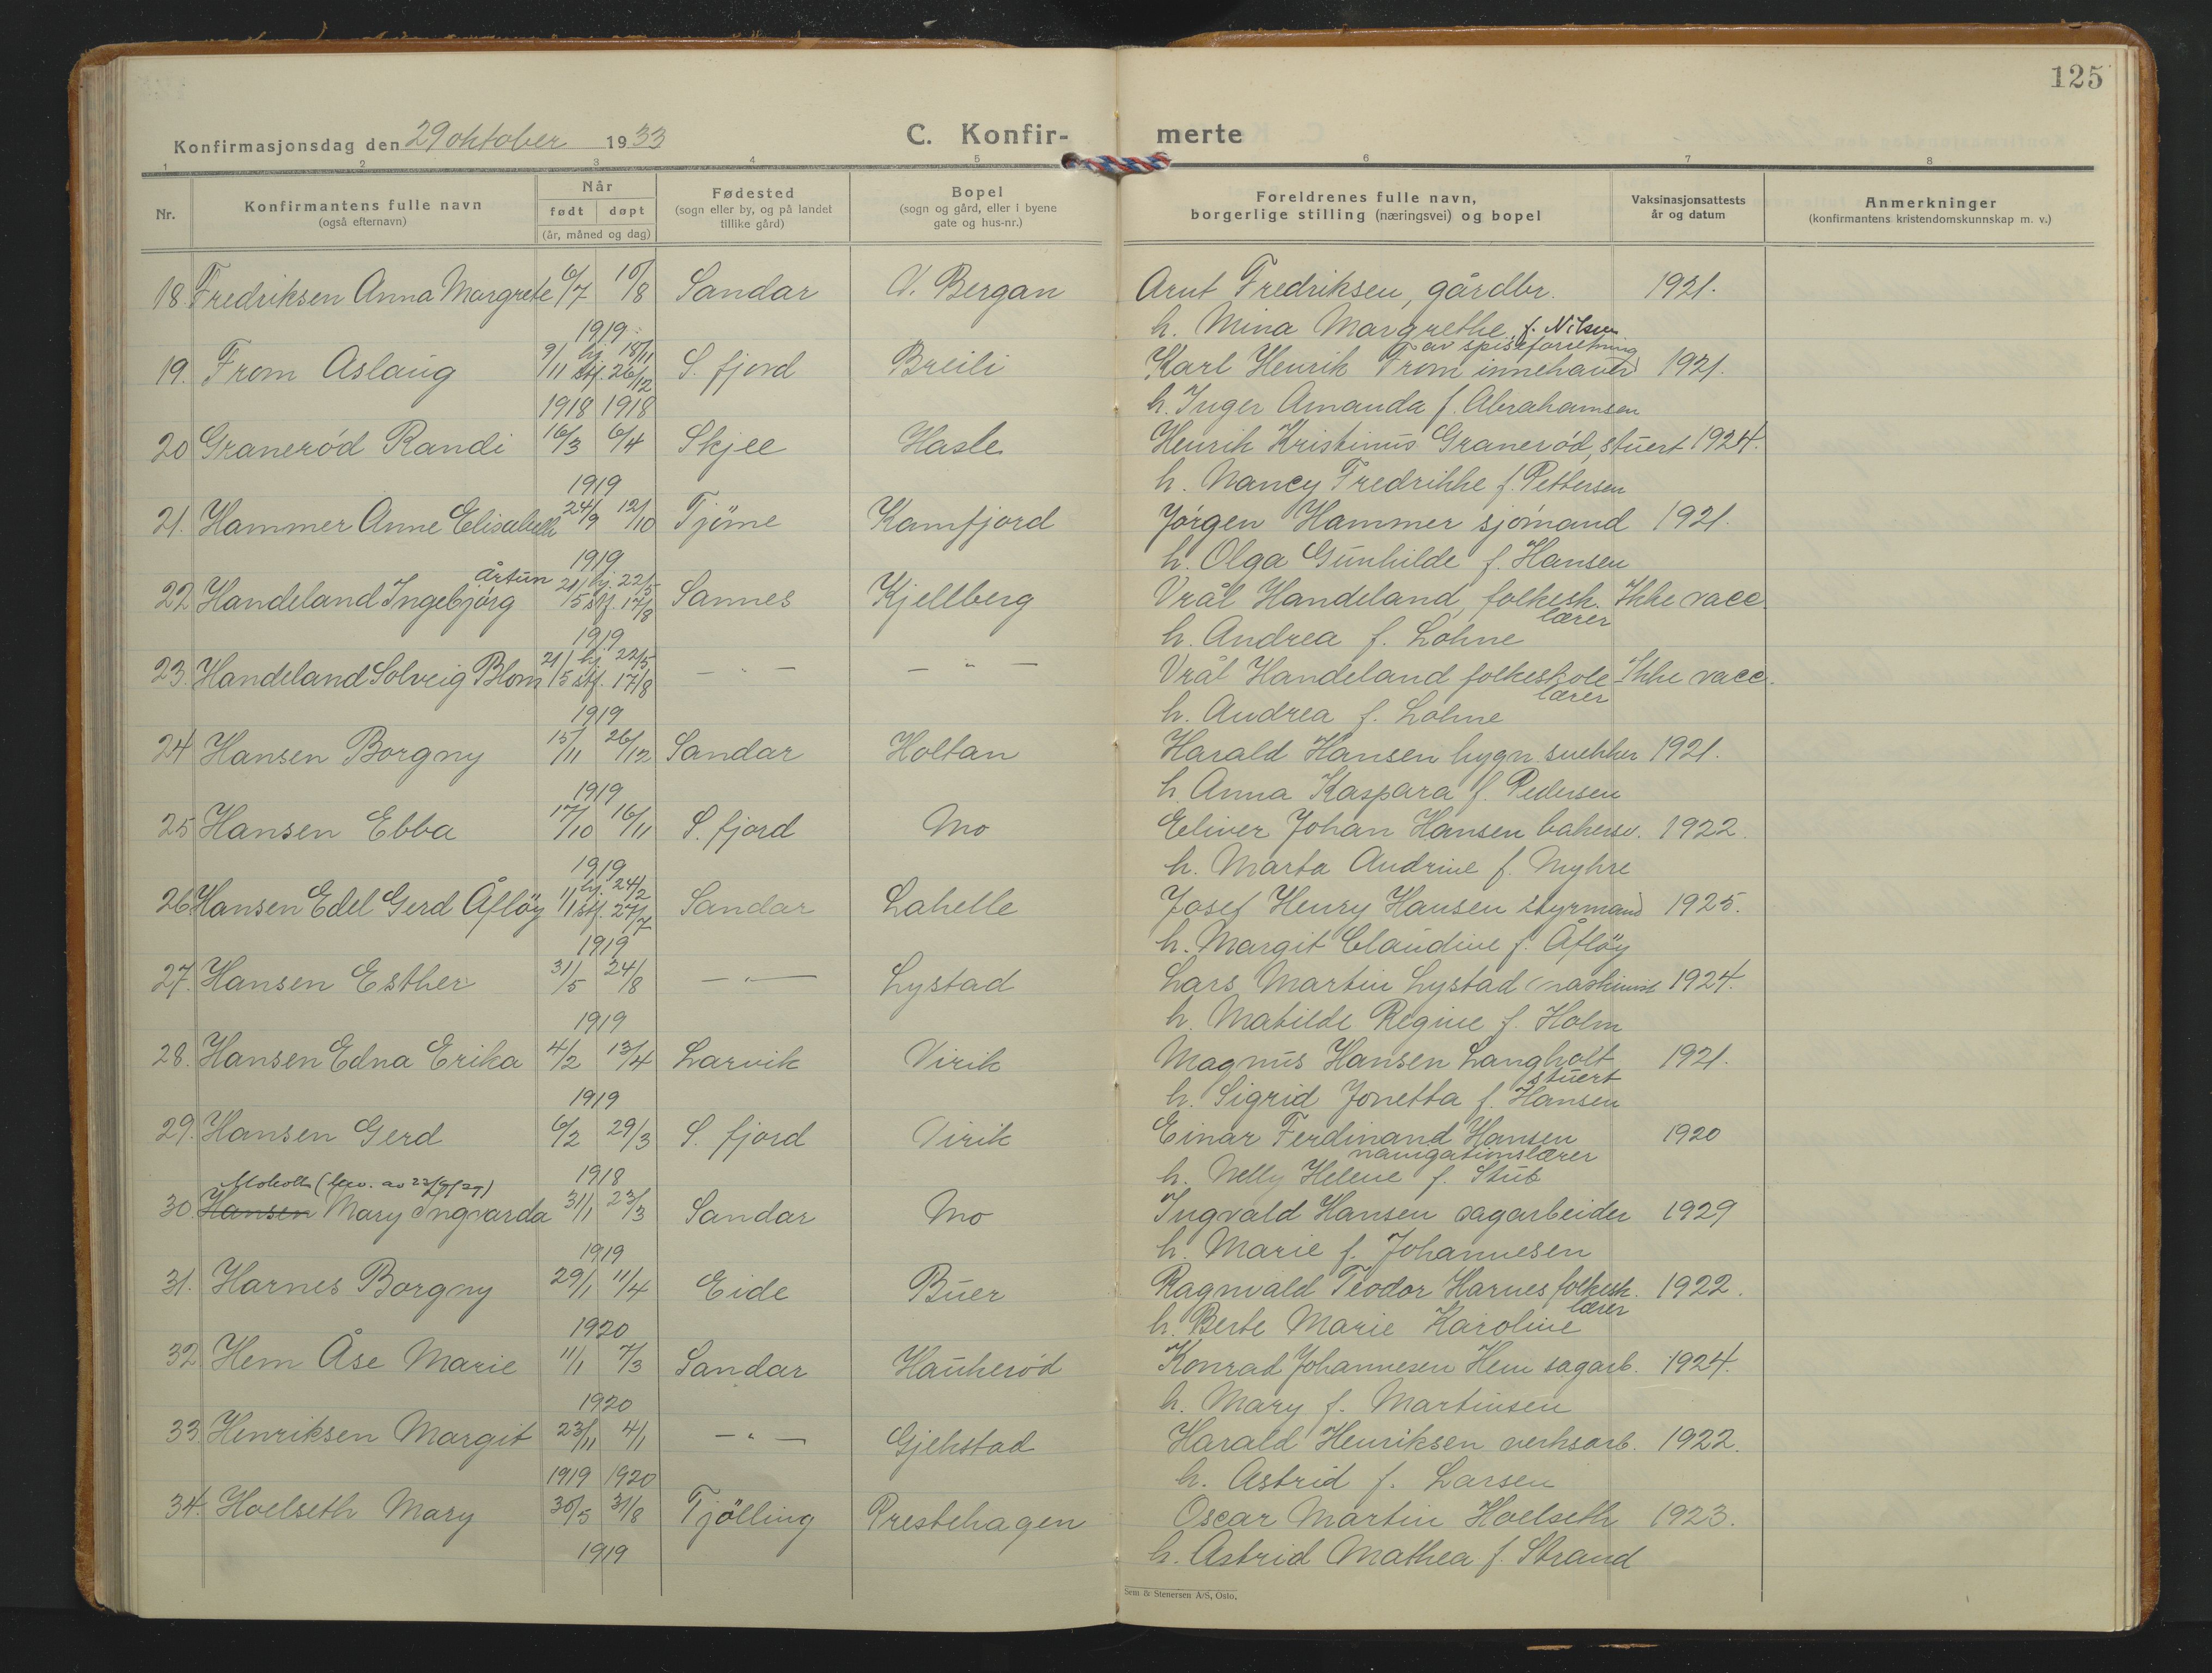 125
Konfirmasjonsdag den 29 oktober 1933
C. Konfir- merte
1 2 3 4 5 6 7 8
Nr.
Konfirmantens fulle navn
(også efternavn)
Når
født døpt
(år, måned og dag)
Fødested
(sogn eller by, og på landet
tillike gård)
Bopel
(sogn og gård, eller i byene
gate og hus-nr.)
Foreldrenes fulle navn,
borgerlige stilling (næringsvei) og bopel
Vaksinasjonsattests
år og datum
Anmerkninger
(konfirmantens kristendomskunnskap m. v.)
18. Fredriksen Anna Margrete 6/7 10/8 Sandar V. Bergan Arnt Fredriksen, gårdbr. 1921.
1919 h. Mina Margrethe, f. Nilsen
av spiseforretning
19. From Aslaug 9/11 hj. 18/11 stf. 26/12 S. fjord Breili Karl Henrik From innehaver 1921.
1918 1918 h. Inger Amanda f. Abrahamsen
20 Granerød Randi 16/3 6/4 Skjee Hasle Henrik Kristinus Granerød, stuert 1924.
1919 h. Nancy Fredrikke f. Pettersen
21. Hammer Anne Elisabeth 24/9 12/10 Tjöme Kamfjord Jörgen Hammer sjömand 1921.
1919 h. Olga Gunhilde f. Hansen
årtun
22 Handeland Ingebjörg 21/5 hj. 22/5 stf. 17/8 Sannes Kjellberg Vrål Handeland, folkesk. Ikke vacc.
lærer
1919 h. Andrea f. Lohne
23. Handeland Solveig Blom 21/5 hj. 22/5 stf. 17/8 — " — — " — Vrål Handeland folkeskole Ikke vacc.
lærer
1919 h. Andrea f. Lohne
24 Hansen Borgny 15/11 26/12 Sandar Holtan Harald Hansen bygn. snekker 1921.
1919 h. Anna Kaspara f. Pedersen
25 Hansen Ebba 17/10 16/11 S. fjord Mo Eeliver Johan Hansen bakersv. 1922.
1919 h. Marta Andrine f. Myhre
26 Hansen Edel Gerd Åfløy 1/1 hj. 24/2 stf. 27/7 Sandar Lahelle Josef Henry Hansen styrmand 1925.
1919 h. Margit Claudine f. Åfløy
27. Hansen Esther 31/5 24/8 — " — Lystad Lars Martin Lystad maskinist 1924.
1919 h. Matilde Regine f. Holm
28. Hansen Edna Erika 4/2 13/4 Larvik Virik Magnus Hansen Langholt 1921.
stuert
1919 h. Sigrid Jonetta f. Hansen
29. Hansen Gerd 6/2 29/3 S. fjord Virik Einar Ferdinand Hansen 1920
navigationslærer
1918 h. Nelly Helene f. Stub
Moholt (bev. av 23/9/29)
30. Hansen Mary Ingvarda 31/1 23/3 Sandar Mo Ingvald Hansen sagarbeider 1929
1919 h. Marie f. Johannesen
31. Harnes Borgny 29/1 11/4 Eide Buer Ragnvald Teodor Harnes folkesk. 1922.
lærer
1920 h. Berte Marie Karoline
32 Hem Åse Marie 11/1 7/3 Sandar Haukerød Konrad Johannesen Hem sagarb. 1924.
1920 h. Mary f. Martinsen
33. Henriksen Margit 23/11 4/1 — " — Gjekstad Harald Henriksen verksarb. 1922.
1919 1920 h. Astrid f. Larsen
34. Hoelseth Mary 30/5 31/8 Tjölling Prestehagen Oscar Martin Hoelseth 1923.
1919 h. Astrid Mathea f. Strand
Sem & Stenersen A/S, Oslo.